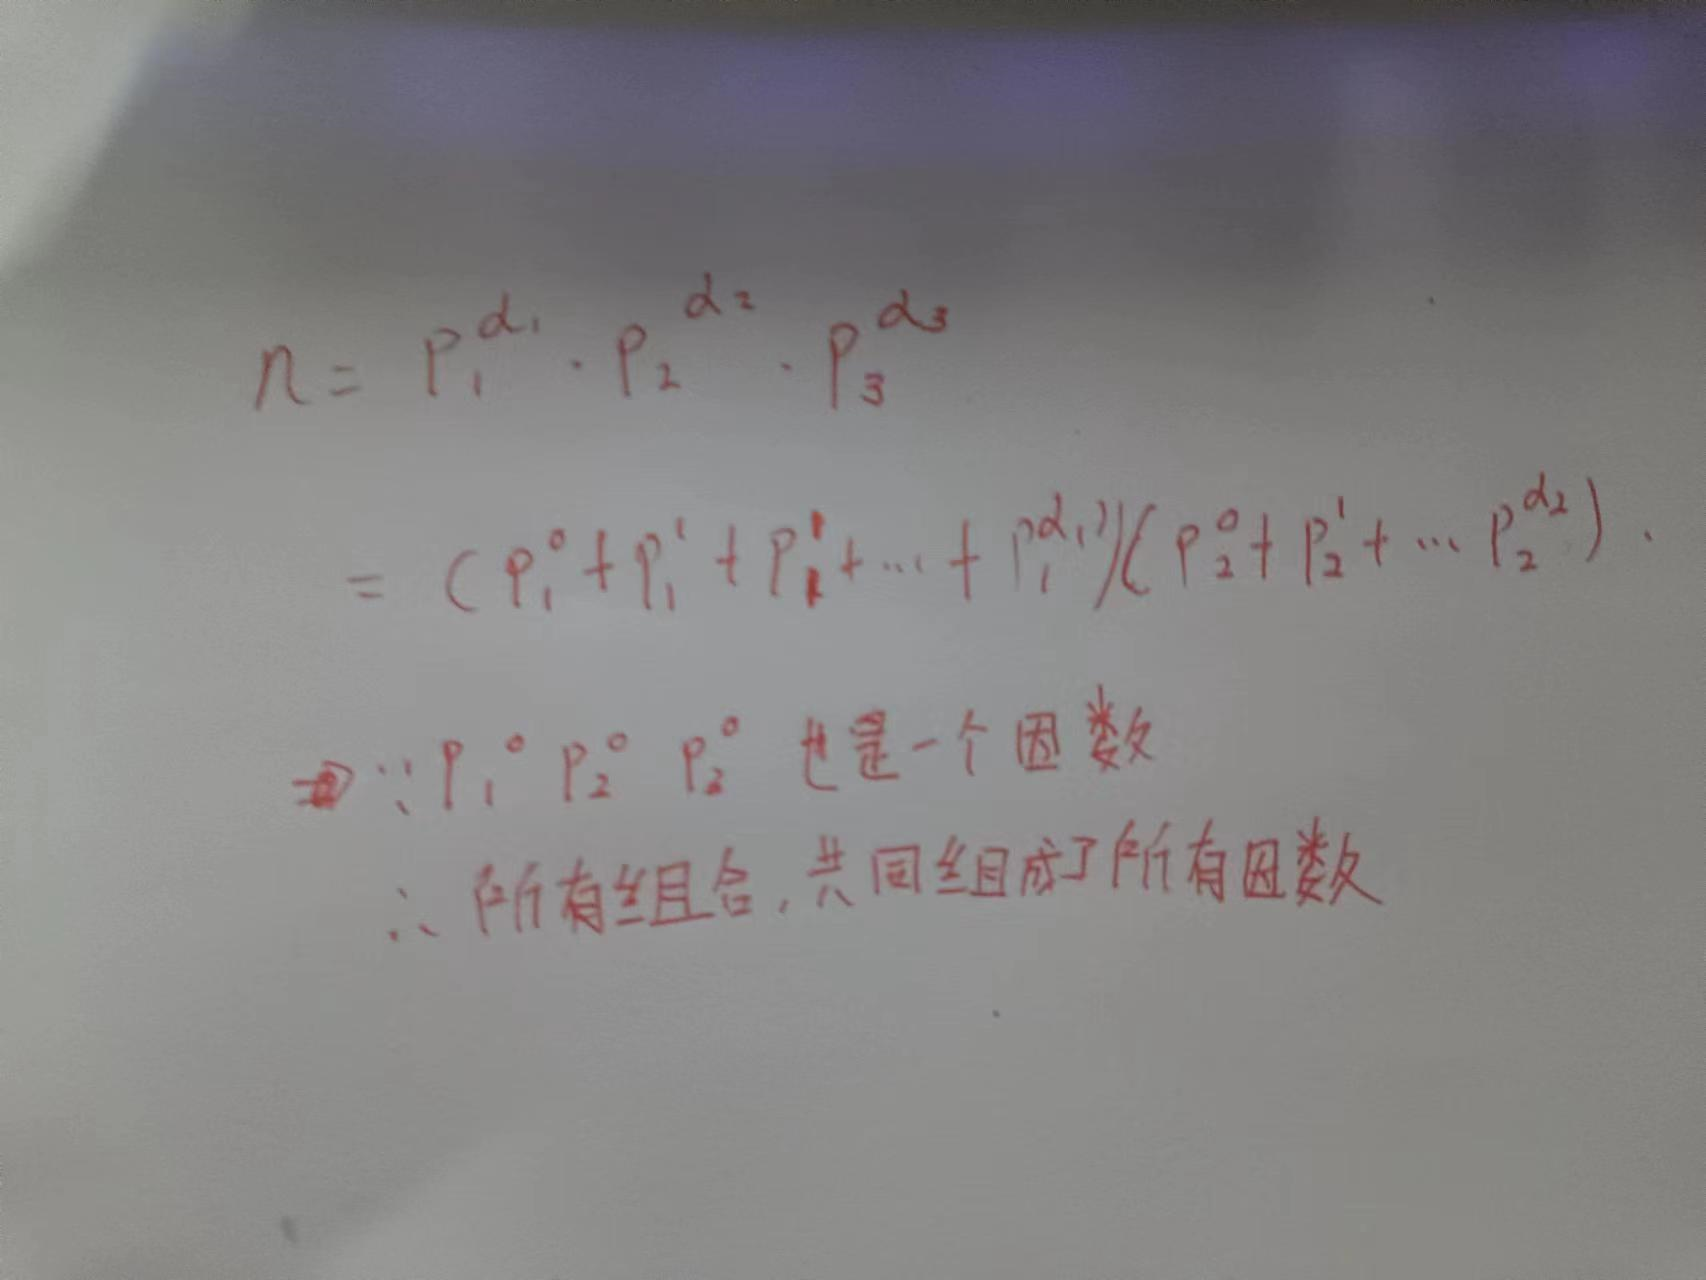 n = p₁^α₁ · p₂^α₂ · p₃^α₃
= (p₁⁰ + p₁¹ + p₁¹ + … + p₁^α₁)(p₂⁰ + p₂¹ + … p₂^α₂) ·
⇒ ∵ p₁⁰ p₂⁰ p₃⁰ 也是一个因数
∴ 所有组合, 共同组成了所有因数